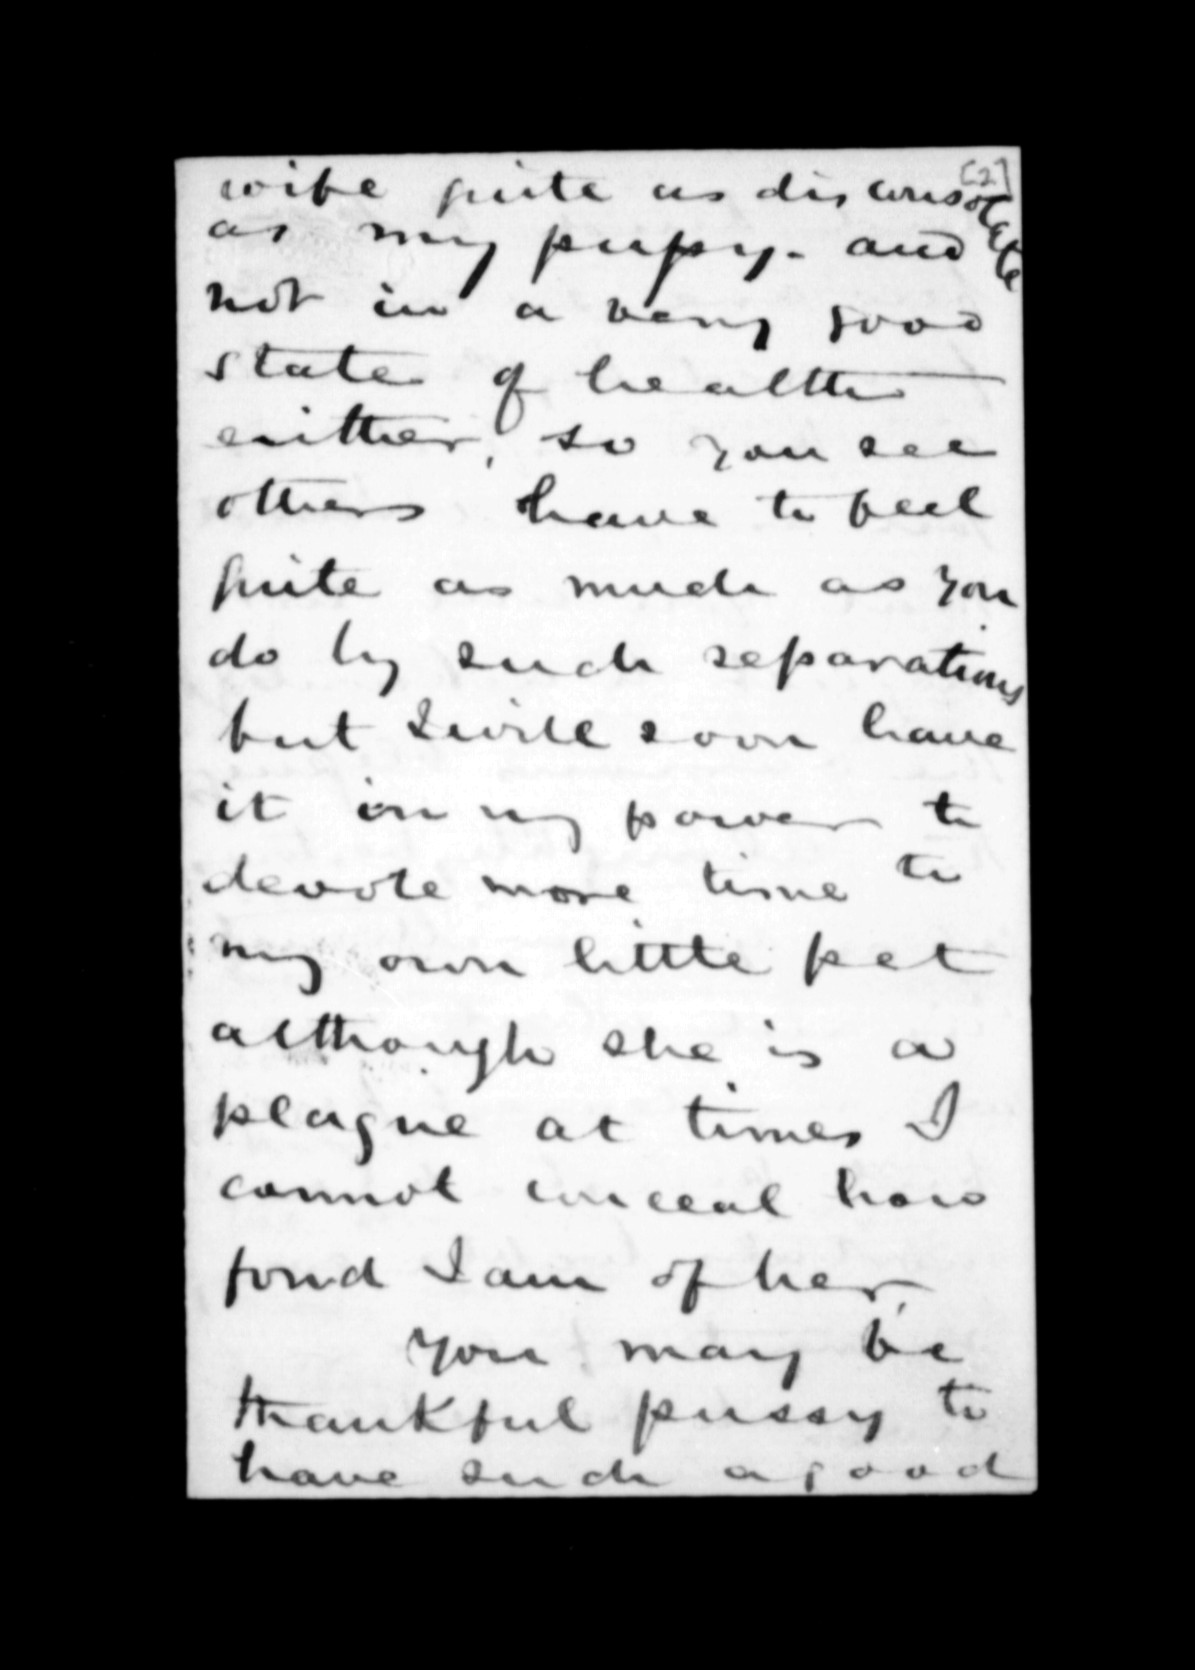 [2]
wife quite as disconsolate
as my pupsy. and
not in a very good
state of health
either, so you see
others have to feel
quite as much as you
do by such separations
but I will soon have
it in my power to
devote more time to
my own little pet
although she is a
plague at times I
cannot conceal how
fond I am of her,
You may be
thankful pussy to
have such a good